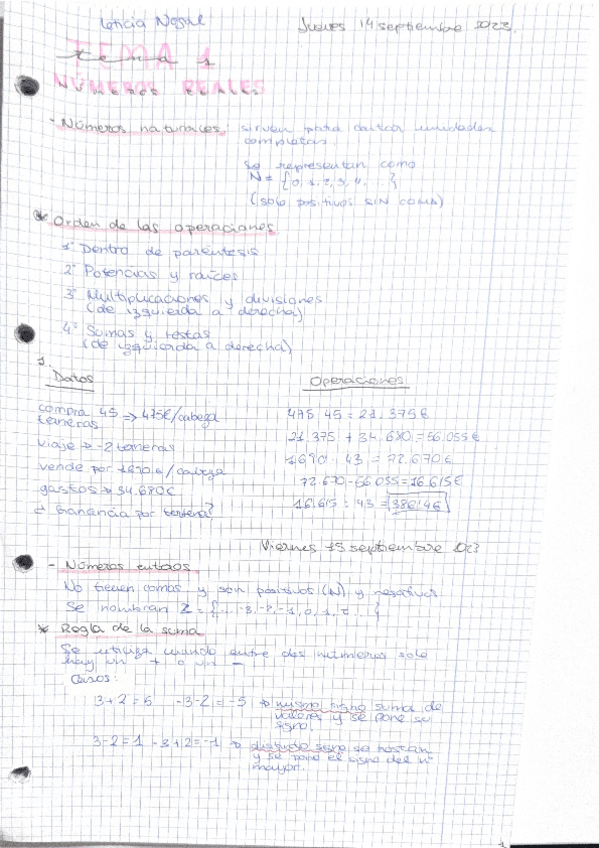 Leticia Nogal
Jueves 14 septiembre 2023.
TEMA 1
NÚMEROS REALES
- Números naturales: sirven para contar unidades
completas.
Se representan como
N = {0, 1, 2, 3, 4, ...}
(solo positivos SIN COMA)
* Orden de las operaciones
1º Dentro de paréntesis
2º Potencias y raíces
3º Multiplicaciones y divisiones
(de izquierda a derecha)
4º Sumas y restas
(de izquierda a derecha)
1.
Datos
Operaciones
compra 45 => 475€/cabeza
terneras
viaje → -2 terneras
vende por 1690€/cabeza
gastos → 34.680€
¿Ganancia por ternera?
475 · 45 = 21.375€
21.375 + 34.680 = 56.055€
1690 · 43 = 72.670€
72.670 - 56.055 = 16.615€
16.615 : 43 = 386'4€
Viernes 15 septiembre 2023
- Números enteros
No tienen comas y son positivos (N) y negativos
Se nombran Z = {... -3, -2, -1, 0, 1, 2 ...}
* Regla de la suma
Se utiliza cuando entre dos números solo
hay un + o un -
Casos:
3+2=5 -3-2=-5 → mismo signo suma de
valores y se pone su
signo.
3-2=1 -3+2=-1 → distinto signo se restan
y se pone el signo del nº
mayor.
1